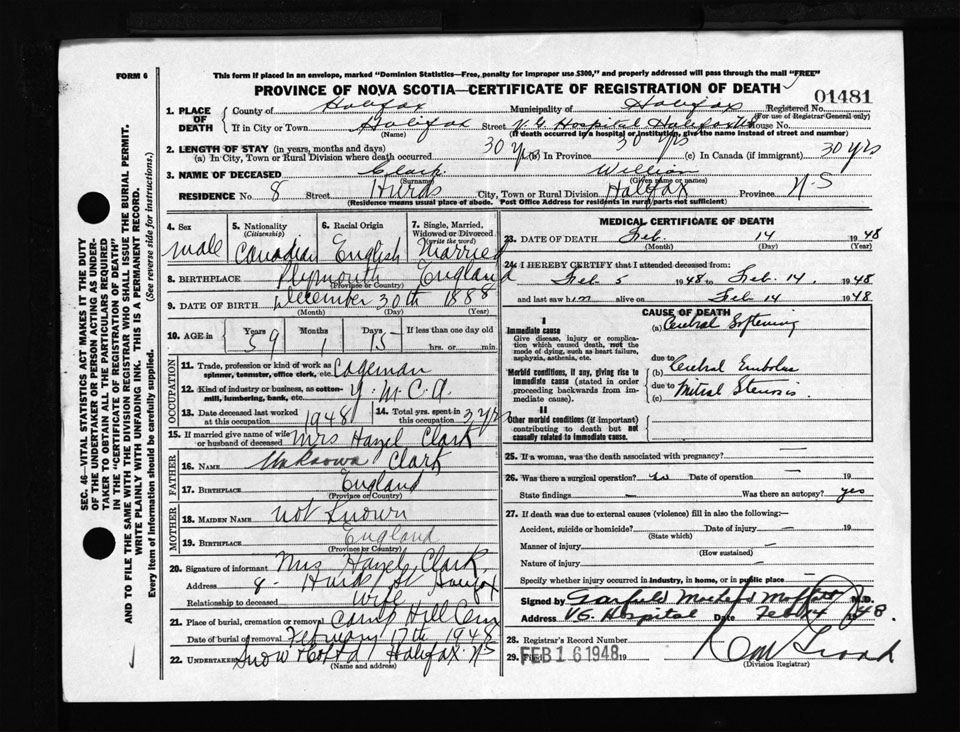 FORM 6
This form if placed in an envelope, marked "Dominion Statistics—Free, penalty for improper use $300," and properly addressed will pass through the mail "FREE"
PROVINCE OF NOVA SCOTIA—CERTIFICATE OF REGISTRATION OF DEATH
01481
1. PLACE OF DEATH
County of Halifax Municipality of Halifax Registered No.
(For use of Registrar General only)
If in City or Town Halifax Street V.G Hospital Halifax House No.
(Name) (If death occurred in a hospital or institution, give the name instead of street and number)
2. LENGTH OF STAY (in years, months and days)
(a) In City, Town or Rural Division where death occurred 30 yrs (b) In Province 30 yrs (c) In Canada (if immigrant) 30 yrs
3. NAME OF DECEASED Clark William
(Surname) (Given name or names)
RESIDENCE No. 8 Street Hurds City, Town or Rural Division Halifax Province N-S
(Residence means usual place of abode. Post Office Address for residents in rural parts not sufficient)
4. Sex male
5. Nationality (Citizenship) Canadian
6. Racial Origin English
7. Single, Married, Widowed or Divorced (write the word) Married
8. BIRTHPLACE Plymouth England
(Province or Country)
9. DATE OF BIRTH December 30th 1888
(Month) (Day) (Year)
10. AGE in Years 59 Months 1 Days 15 If less than one day old
hrs. or min.
OCCUPATION
11. Trade, profession or kind of work as spinner, teamster, office clerk, etc. Cageman
12. Kind of industry or business, as cotton-mill, lumbering, bank, etc. Y.M.C.A.
13. Date deceased last worked at this occupation 1948
14. Total yrs. spent in this occupation 3 yrs
15. If married give name of wife or husband of deceased Mrs Hazel Clark
FATHER
16. NAME Unknown Clark
17. BIRTHPLACE England
(Province or Country)
MOTHER
18. MAIDEN NAME not Known
19. BIRTHPLACE England
(Province or Country)
20. Signature of informant Mrs Hazel Clark
Address 8 - Hurds St Halifax
Relationship to deceased Wife
21. Place of burial, cremation or removal Camp Hill Cem
Date of burial or removal February 17th 1948
22. UNDERTAKER Snow & Co Ltd Halifax N S
(Name and address)
MEDICAL CERTIFICATE OF DEATH
23. DATE OF DEATH Feb. 14 1948
(Month) (Day) (Year)
24. I HEREBY CERTIFY that I attended deceased from:
Feb 5 1948 to Feb. 14. 1948
and last saw him alive on Feb 14 1948
CAUSE OF DEATH
I
Immediate cause
Give disease, injury or complication which caused death, not the mode of dying, such as heart failure, asphyxia, asthenia, etc.
(a) Cerebral Softening
due to
Morbid conditions, if any, giving rise to immediate cause (stated in order proceeding backwards from immediate cause).
Cerebral Embolus
due to
(c) Mitral Stenosis
II
Other morbid conditions (if important) contributing to death but not causally related to immediate cause.
25. If a woman, was the death associated with pregnancy? —
26. Was there a surgical operation? no Date of operation — 19
State findings — Was there an autopsy? yes
27. If death was due to external causes (violence) fill in also the following:—
Accident, suicide or homicide? Date of injury — 19
(State which)
Manner of injury —
(How sustained)
Nature of injury —
Specify whether injury occurred in industry, in home, or in public place —
Signed by Garfield Moffatt M.D.
VG. Hospital Date Feb 14 1948
28. Registrar's Record Number
29. Filed FEB 16 1948 19
(Division Registrar)
SEC. 46—VITAL STATISTICS ACT MAKES IT THE DUTY
OF THE UNDERTAKER OR PERSON ACTING AS UNDER-
TAKER TO OBTAIN ALL THE PARTICULARS REQUIRED
IN THE "CERTIFICATE OF REGISTRATION OF DEATH"
AND TO FILE THE SAME WITH THE DIVISION REGISTRAR WHO SHALL ISSUE THE BURIAL PERMIT.
WRITE PLAINLY WITH UNFADING INK. THIS IS A PERMANENT RECORD.
Every item of Information should be carefully supplied. (See reverse side for instructions.)